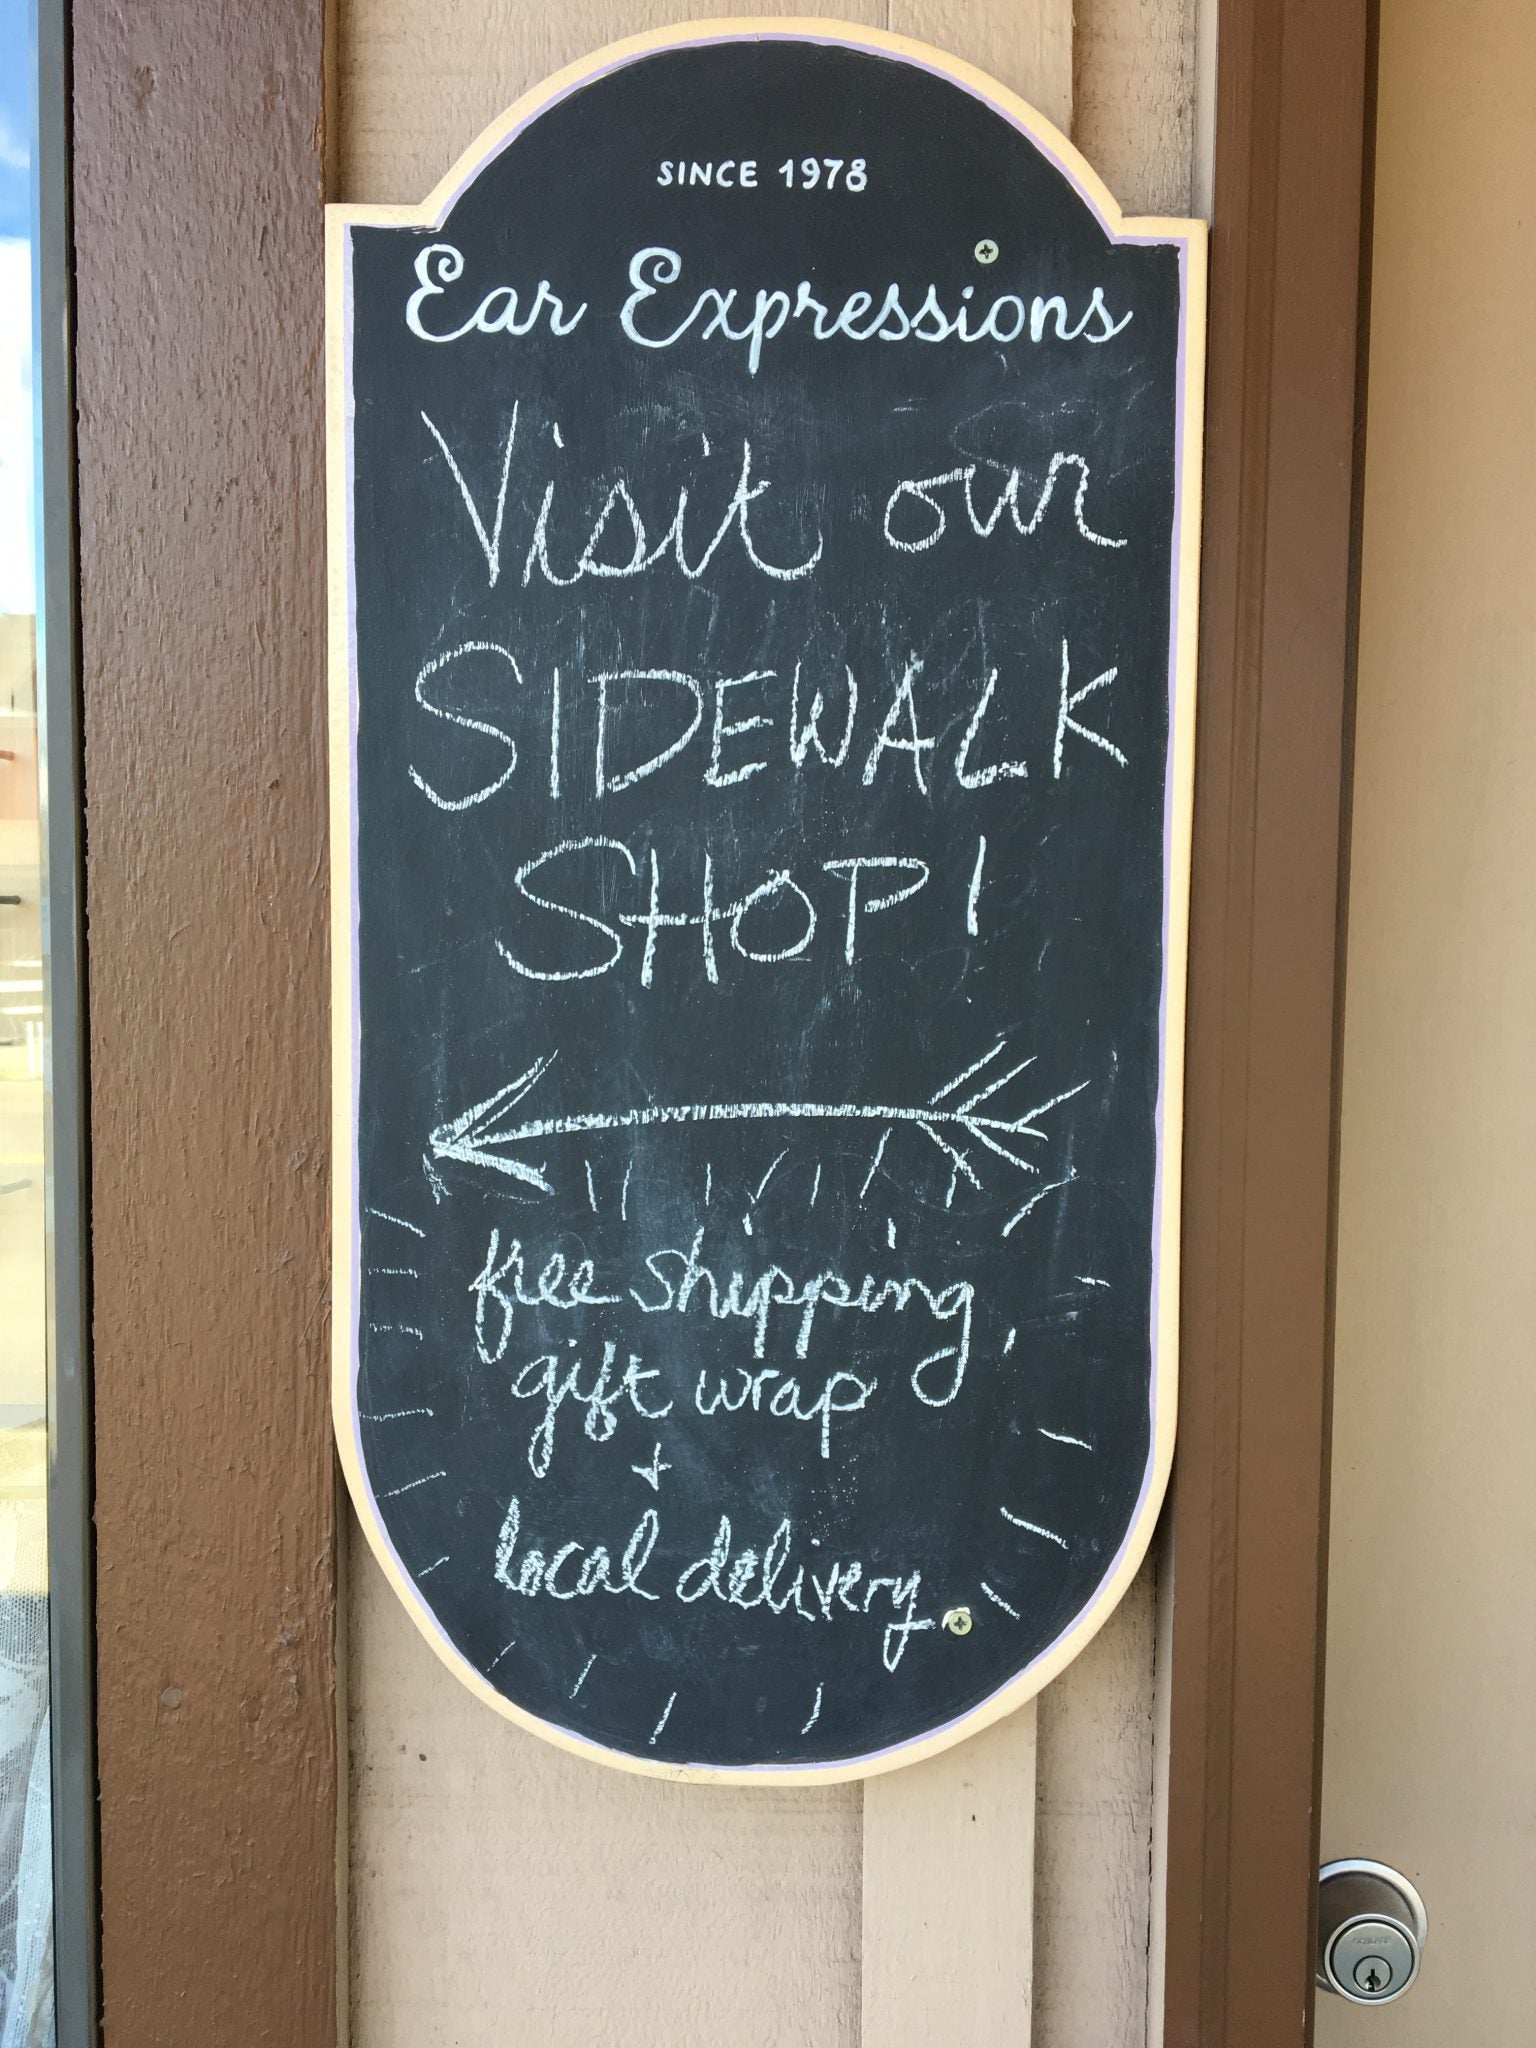 SINCE 1978
Ear Expressions
Visit our
SIDEWALK
SHOP!
free shipping,
gift wrap
+
local delivery.